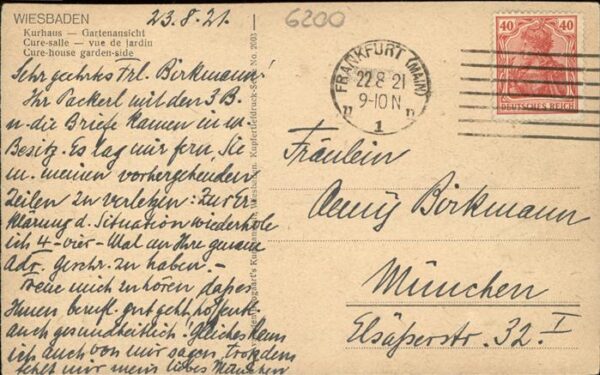 WIESBADEN
Kurhaus — Gartenansicht
Cure-salle — vue de jardin
Cure-house garden-side
23.8.21.
6200
Sehr geehrtes Frl. Birkmann!
Ihr Packerl mit den 3 B.
u. die Briefe kamen in m.
Besitz. Es lag mir fern, Sie
m. meinen vorhergehenden
Zeilen zu verletzen: Zur Er-
klärung d. Situation wiederhole
ich 4-vier-Mal an Ihre genaue
Adr. geschr. zu haben. –
Freue mich zu hören, dass es
Ihnen berufl. gut geht, hoffentl.
auch gesundheitlich! Gleiches kann
ich auch von mir sagen, trotzdem
fehlt mir mein liebes München
Kupfertiefdruck-Serie No. 2003
Wiesbaden.
FRANKFURT (MAIN)
22.8.21
9-10 N
n 1 n
40 40
DEUTSCHES REICH
Fräulein
Birkmann
München
Elsäßerstr. 32. I